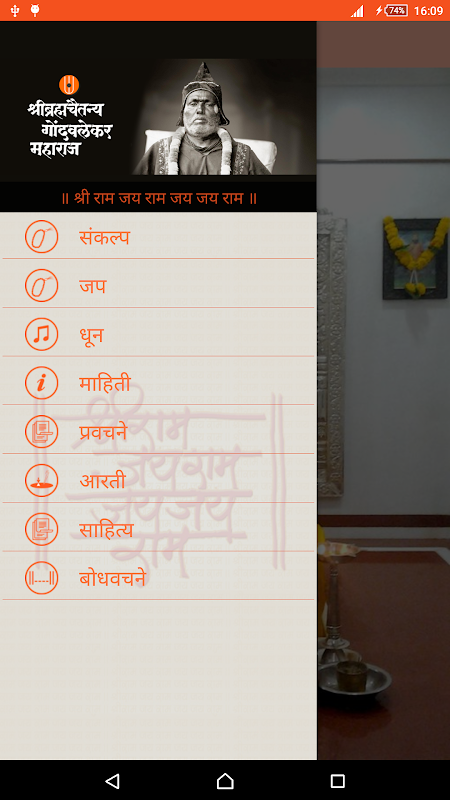 74%
16:09
श्रीब्रह्मचैतन्य
गोंदवलेकर
महाराज
॥ श्री राम जय राम जय जय राम ॥
संकल्प
जप
धून
माहिती
प्रवचने
आरती
साहित्य
बोधवचने
श्रीराम
जयराम
जयजय
राम